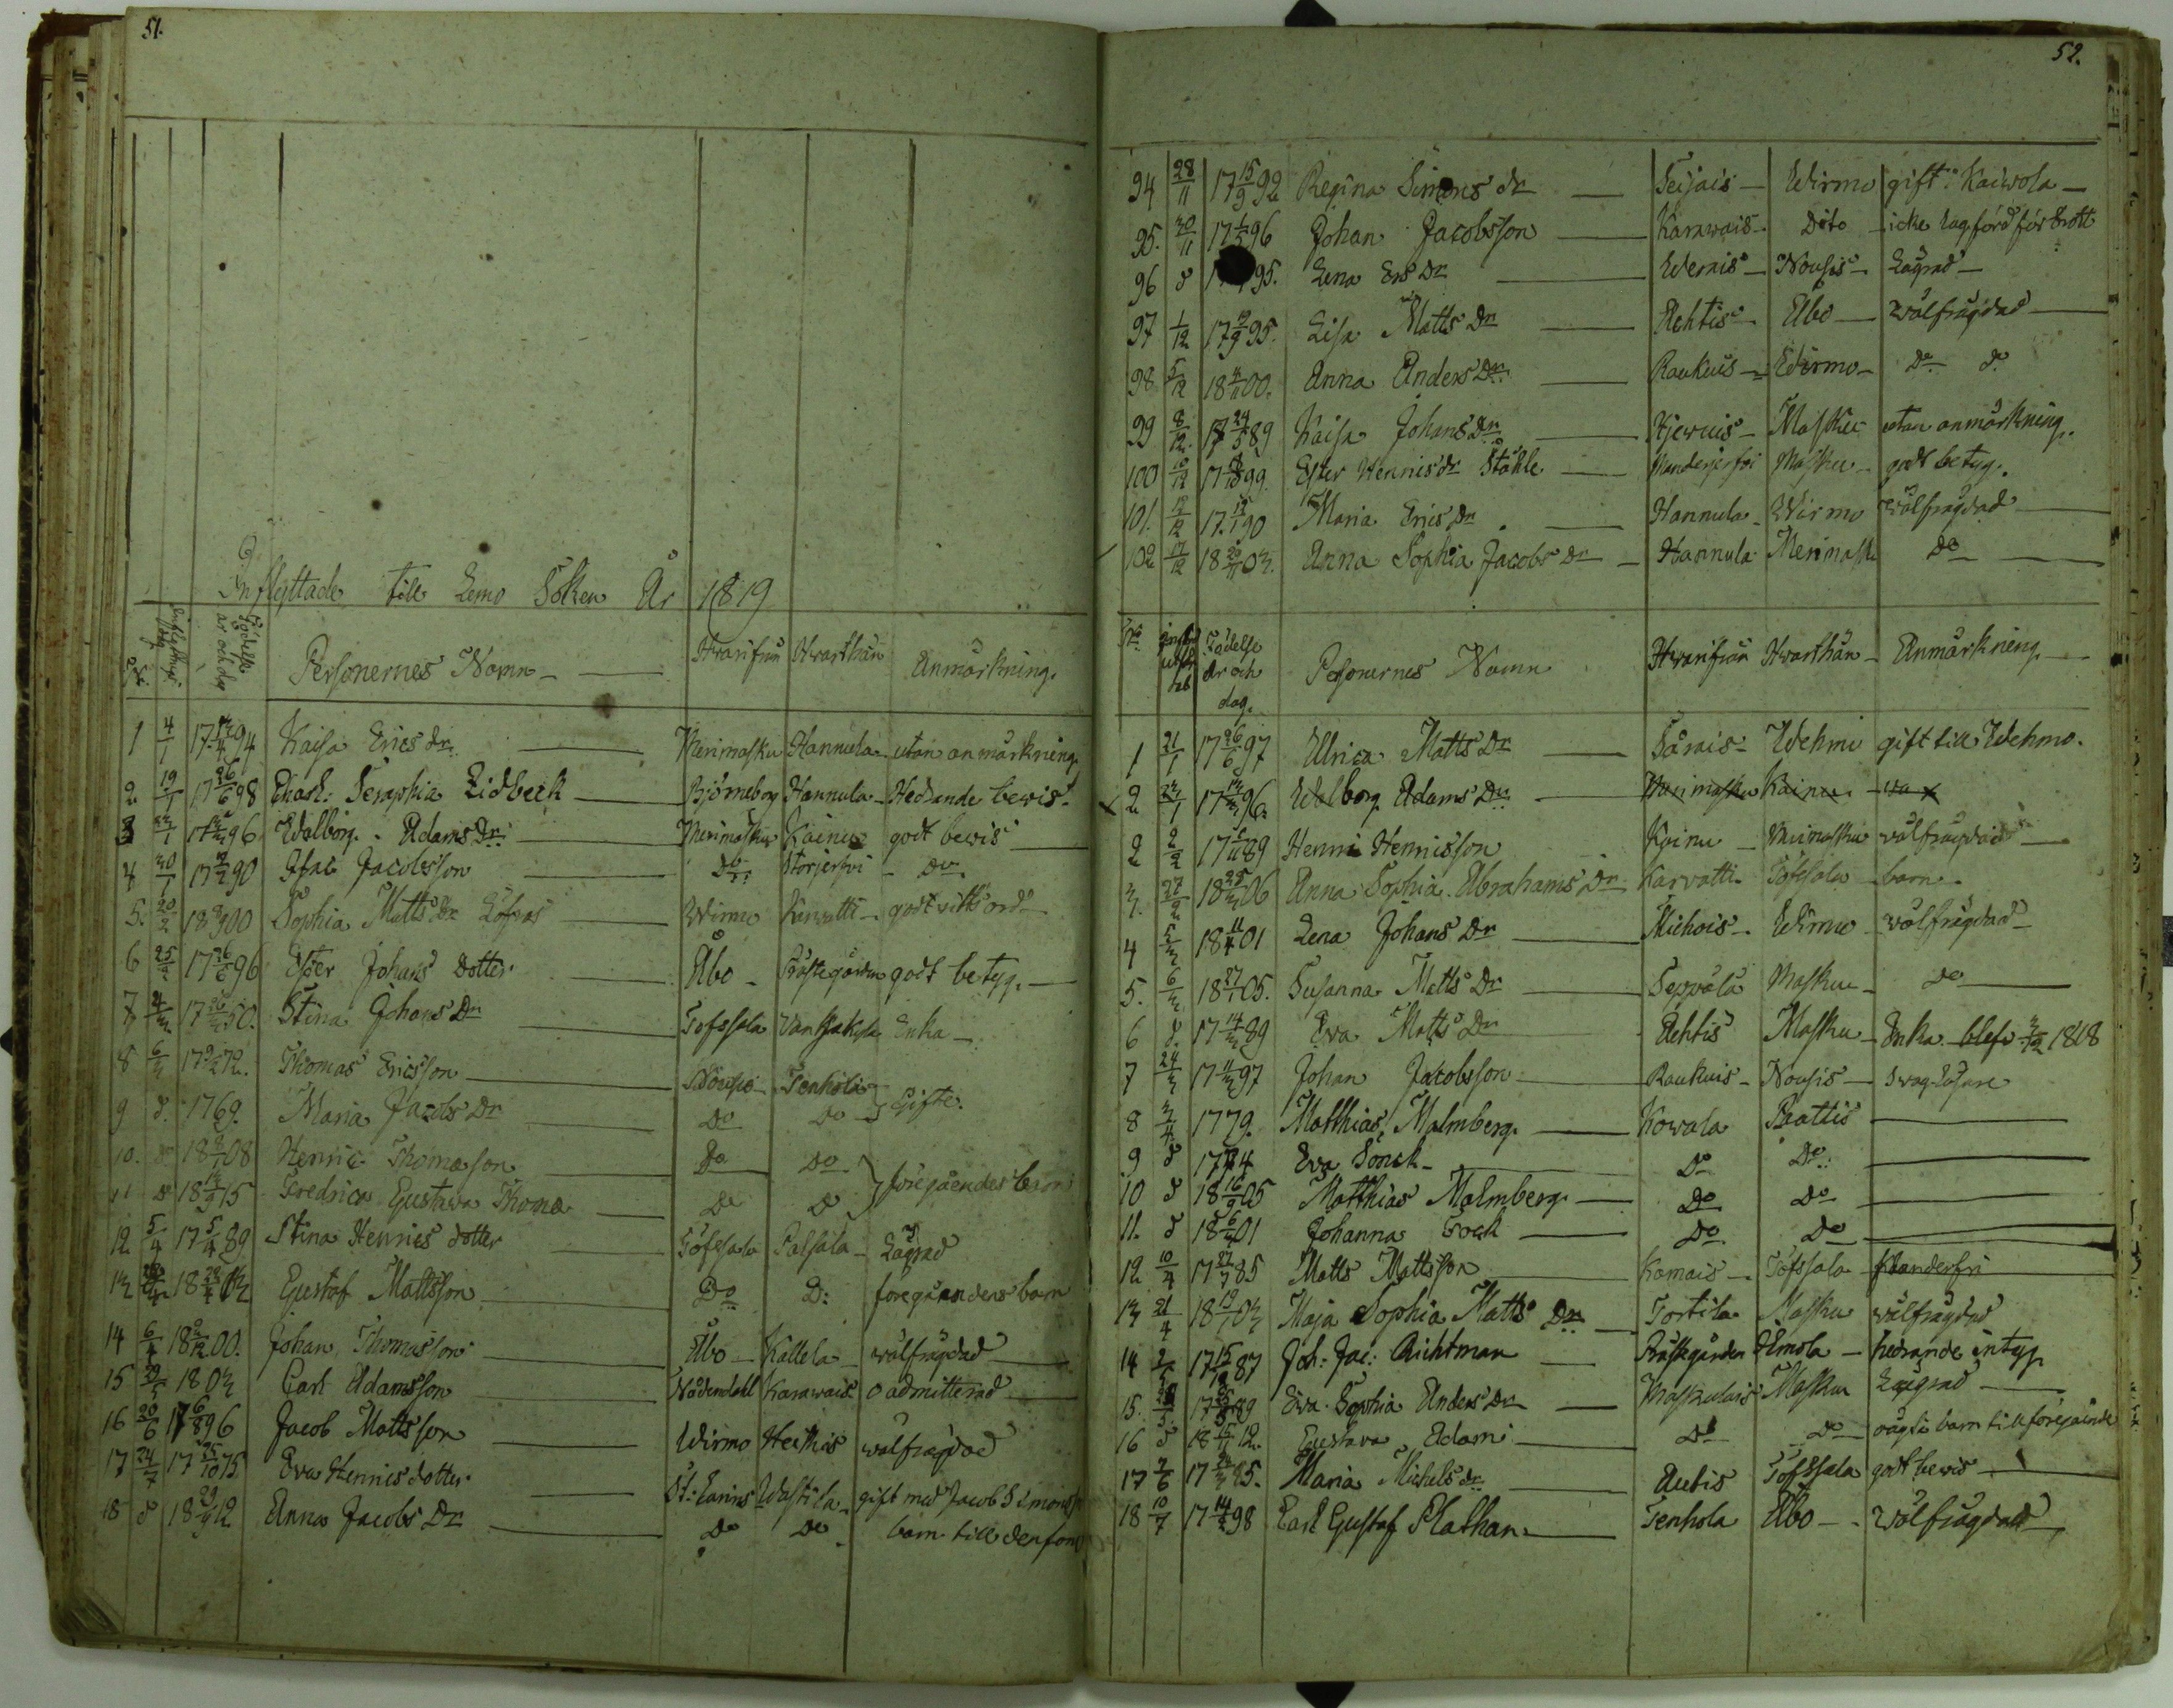 51.
Inflyttade till Lemo Soken År 1819
No. Inflyttnings dag. Födelse år och dag Personernes Namn Hvarifrån Hvarthän Anmärkning.
1 4/1 17 12/4 94 Kaisa Erics dr Merimasku Hannula utan anmärkning.
2 19/1 17 26/6 98 Charl: Seraphia Lidbeck Björneborg Hannula Hedrande bewis
3 23/1 96 Walborg Adams Dr Merimasku Kainu godt bewis
4 30/1 17 90 Isac Jacobsson Do Storjerfvi Do
5. 20/2 18 00 Sophia Matts Dr Löfros Wirmo Karwatti godt vitts ord
6 25/2 17 96 Ester Johans dotter Åbo Prästegården godt betyg.
7 17 50. Stina Johans Dr Tofssala Enka
8 6/3 17 72. Thomas Ericsson Nousis Tenhola
9 d. 1769. Maria Jacobs Dr Do Do } Gifte.
10. do 18 08 Henric Thomasson Do Do
11 do 18 15 Fredrica Gustava Thomæ Do Do } föregåendes barn
12 5/4 17 5/4 89 Stina Henrics dotter Töfssala Palsala Lägrad
13 18 13 Gustaf Mattsson Do D: föregåendens barn
14 6/4 18 00. Johan Thomasson Åbo Kallela wälfrägdad
15 29/5 1803 Carl Adamsson Nådendall Karawais oadmitterad
16 20/6 17 6/8 96 Jacob Mattsson Wirmo Heikis wälfrägdad
17 24/7 17 25/10 75 Eva Henrics dotter St: Carins Wastila gift med Jacob Simonss
18 d 18 29/9 12 Anna Jacobs Dr Do Do barn till den förr
52.
94 28/11 17 15/9 92 Regina Simons dr Seijais Wirmo gift i Kaiwola
95. 30/11 17 1/5 96 Johan Jacobsson Karawais Dito icke lagförd för brott
96 d 95. Lena Ers Dr Wernis Nousis Lägrad
97 1/12 17 19/9 95. Lisa Matts Dr Aehtis Åbo wälfrägdad
98 5/12 18 00. Anna Anders Dr Raukuis Wirmo Do do
99 8/12. 17 24/5 89 Kaisa Johans Dr Hjerwis Masku utan anmärkning.
100 10/12 17 99 Ester Henrics dr Ståhle Masku godt betyg.
101. 12/12 17. 90 Maria Erics Dr Hannula Wirmo wälfrägdad
102 17/12 18 03. Anna Sophia Jacobs Dr Hannula Merimasku Do
No Födelse år och dag. Personernes Namn Hvarifrån Hvarthän Anmärkning
1 21/1 17 26/6 97 Ulrica Matts Dr Särnis Wehmo gift till Wehmo.
2 23/1 17 96. Walborg Adams Dr Merimasku Kainu
2 2/2 17 89 Henric Henricsson Kainu Merimasku wälfrägdad
3. 27/2 18 25/3 06 Anna Sophia Abrahams Dr Karvatti Töfssala barn
4 5/3 18 11/4 01 Lena Johans Dr Michois Wirmo wälfrägdad
5. 6/3 18 27/1 05. Susanna Matts Dr Seppälä Masku do
6 d. 17 14/3 89 Eva Matts Dr Aehtis Masku Enka blef 3/12 1818
7 24/3 17 11/3 97 Johan Jacobsson Raukuis Nousis swag läsare
8 3/4 1779. Matthias Malmberg. Kowala Pattis
9 d 1774 Eva Sonck Do Do:
10 d 18 16/9 05 Matthias Malmberg. Do Do
11. d 18 6/3 01 Johanna Fock Do. Do
12 10/4 17 27/7 85 Matts Mattsson Kamais Töfssala klanderfri
13 21/4 18 19/1 03 Maja Sophia Matts Dr Tortila Masku wälfrägdad
14 2/5 17 15/12 87 Joh: Jac: Richtman Prästgården Hemola hedrande intyg
15. 17 89 Eva Sophia Anders Dr Maskulais Masku Lägrad
16 d 18 12. Gustava Adami Do Do oägta barn till föregående
17 2/6 17 24/3 85. Maria Michels dr Autis Töfssala godt bewis
18 10/7 17 14/2 98 Carl Gustaf Plathan Tenhola Åbo wälfrägdad